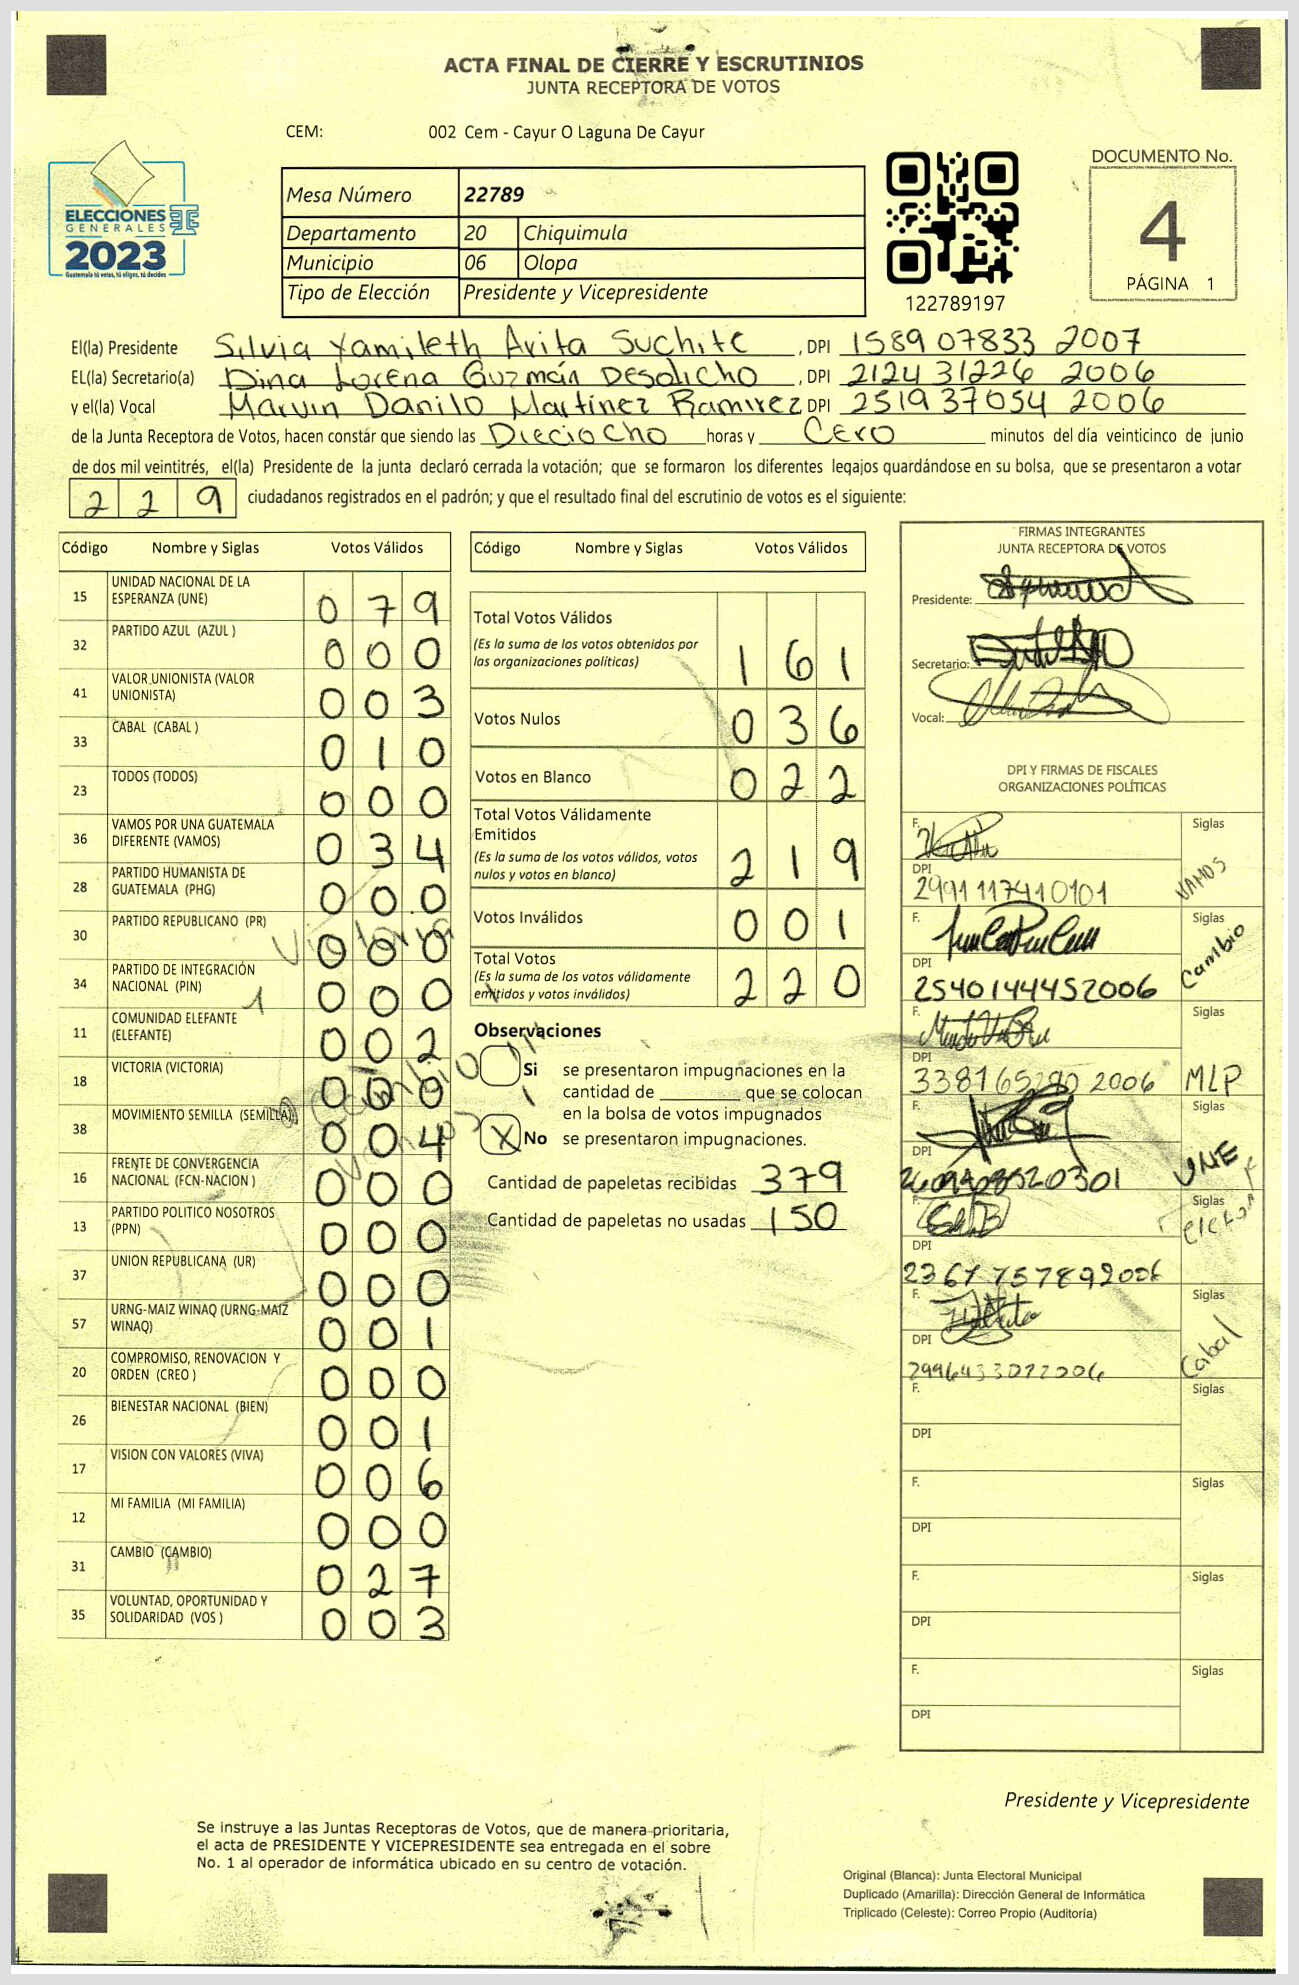 ACTA FINAL DE CIERRE Y ESCRUTINIOS
JUNTA RECEPTORA DE VOTOS
CEM: 002 Cem - Cayur O Laguna De Cayur
ELECCIONES
GENERALES
2023
Guatemala tú votas, tú eliges, tú decides
Mesa Número 22789
Departamento 20 Chiquimula
Municipio 06 Olopa
Tipo de Elección Presidente y Vicepresidente
122789197
DOCUMENTO No.
4
PÁGINA 1
El(la) Presidente Silvia Yamileth Avita Suchite, DPI 1589 07833 2007
EL(la) Secretario(a) Dina Lorena Guzmán Desdicho, DPI 2124 31226 2006
y el(la) Vocal Marvin Danilo Martinez Ramirez DPI 2519 37054 2006
de la Junta Receptora de Votos, hacen constár que siendo las Dieciocho horas y Cero minutos del día veinticinco de junio
de dos mil veintitrés, el(la) Presidente de la junta declaró cerrada la votación; que se formaron los diferentes legajos guardándose en su bolsa, que se presentaron a votar
229 ciudadanos registrados en el padrón; y que el resultado final del escrutinio de votos es el siguiente:
Código Nombre y Siglas Votos Válidos
15 UNIDAD NACIONAL DE LA ESPERANZA (UNE) 079
32 PARTIDO AZUL (AZUL ) 000
41 VALOR UNIONISTA (VALOR UNIONISTA) 003
33 CABAL (CABAL ) 010
23 TODOS (TODOS) 000
36 VAMOS POR UNA GUATEMALA DIFERENTE (VAMOS) 034
28 PARTIDO HUMANISTA DE GUATEMALA (PHG) 000
30 PARTIDO REPUBLICANO (PR) 000
34 PARTIDO DE INTEGRACIÓN NACIONAL (PIN) 000
11 COMUNIDAD ELEFANTE (ELEFANTE) 002
18 VICTORIA (VICTORIA) 000
38 MOVIMIENTO SEMILLA (SEMILLA) 004
16 FRENTE DE CONVERGENCIA NACIONAL (FCN-NACION ) 000
13 PARTIDO POLITICO NOSOTROS (PPN) 000
37 UNION REPUBLICANA (UR) 000
57 URNG-MAIZ WINAQ (URNG-MAIZ WINAQ) 001
20 COMPROMISO, RENOVACION Y ORDEN (CREO ) 000
26 BIENESTAR NACIONAL (BIEN) 001
17 VISION CON VALORES (VIVA) 006
12 MI FAMILIA (MI FAMILIA) 000
31 CAMBIO (CAMBIO) 027
35 VOLUNTAD, OPORTUNIDAD Y SOLIDARIDAD (VOS ) 003
Código Nombre y Siglas Votos Válidos
Total Votos Válidos
(Es la suma de los votos obtenidos por las organizaciones políticas) 161
Votos Nulos 036
Votos en Blanco 022
Total Votos Válidamente Emitidos
(Es la suma de los votos válidos, votos nulos y votos en blanco) 219
Votos Inválidos 001
Total Votos
(Es la suma de los votos válidamente emitidos y votos inválidos) 220
Observaciones
Si se presentaron impugnaciones en la
cantidad de ________ que se colocan
en la bolsa de votos impugnados
X No se presentaron impugnaciones.
Cantidad de papeletas recibidas 379
Cantidad de papeletas no usadas 150
FIRMAS INTEGRANTES
JUNTA RECEPTORA DE VOTOS
Presidente:
Secretario:
Vocal:
DPI Y FIRMAS DE FISCALES
ORGANIZACIONES POLÍTICAS
F. Siglas VAMOS
DPI 2991117410101
F. Siglas Cambio
DPI 2540144452006
F. Siglas MLP
DPI 2006
F. Siglas UNE
DPI
F. Siglas
DPI 2367757892006
F. Siglas Cabal
DPI
F. Siglas
DPI
F. Siglas
DPI
F. Siglas
DPI
F. Siglas
DPI
Presidente y Vicepresidente
Se instruye a las Juntas Receptoras de Votos, que de manera prioritaria,
el acta de PRESIDENTE Y VICEPRESIDENTE sea entregada en el sobre
No. 1 al operador de informática ubicado en su centro de votación.
Original (Blanca): Junta Electoral Municipal
Duplicado (Amarilla): Dirección General de Informática
Triplicado (Celeste): Correo Propio (Auditoría)